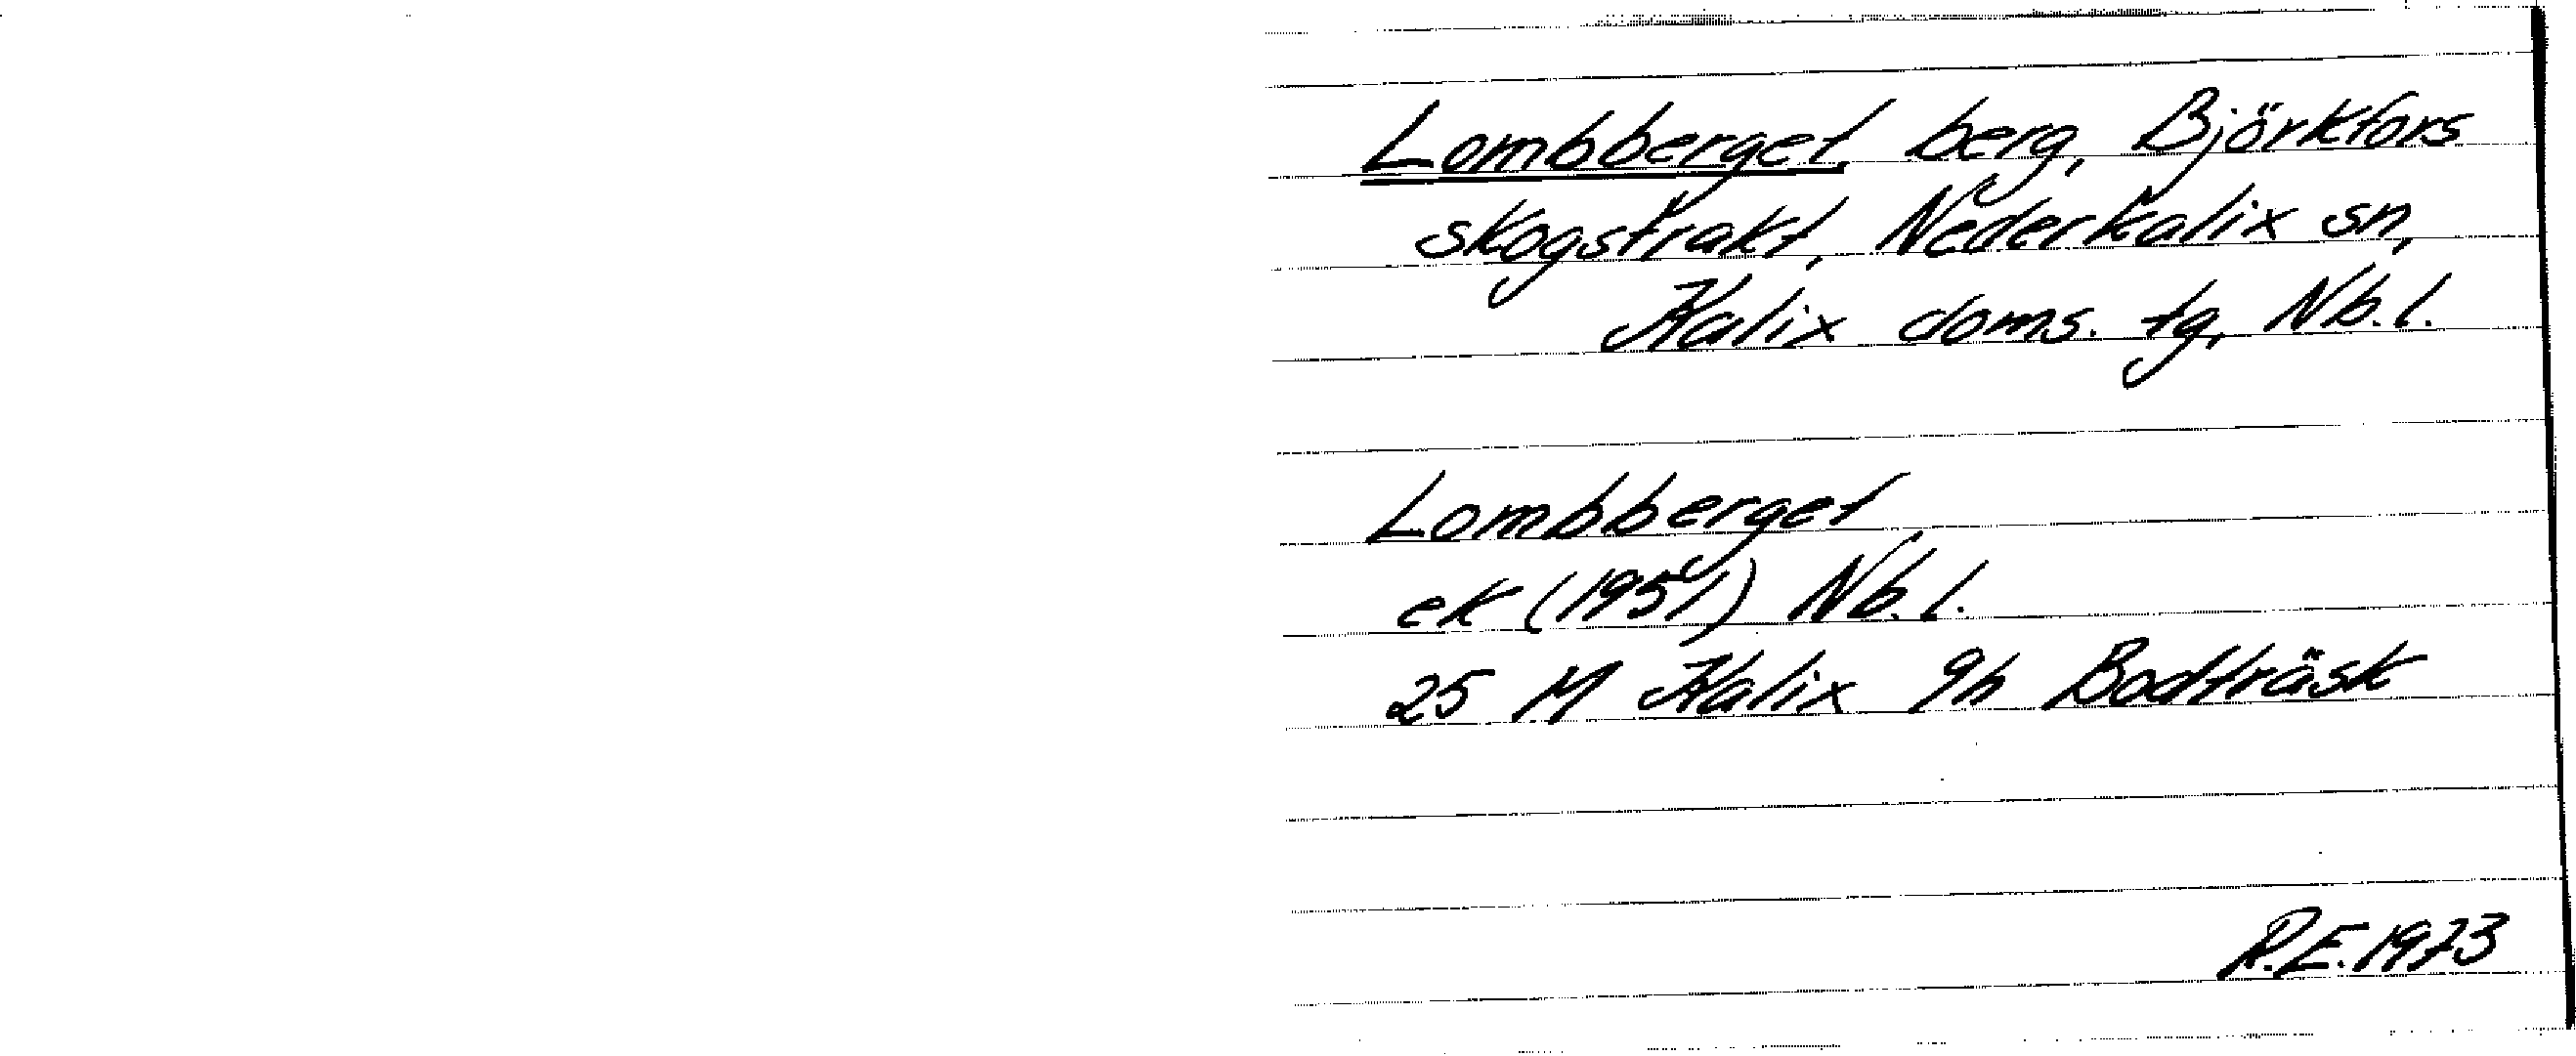 Lombberget, berg, Björkfors
skogstrakt, Nederkalix sn,
Kalix doms. tg, Nb.l.
Lombberget
ek (1951) Nb.l.
25 M Kalix 9h Bodträsk
R.E. 1973